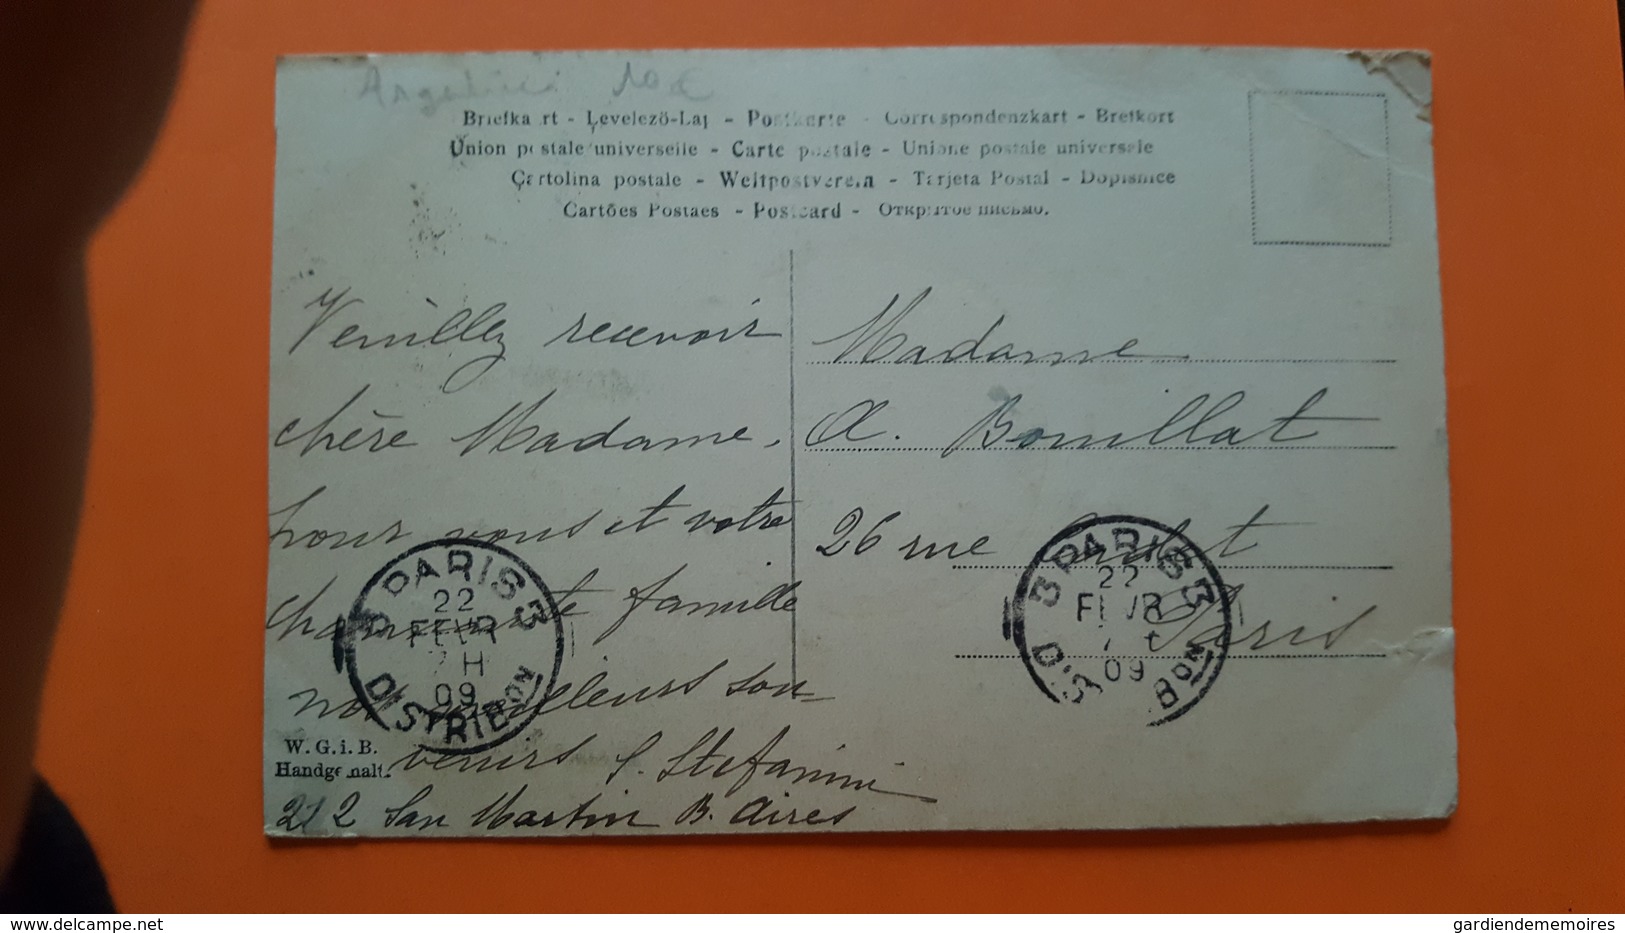 10 €
Briefka rt - Levelező-Lap - Postkarte - Correspondenzkart - Brefkort
Union postale universelle - Carte postale - Unione postale universale
Cartolina postale - Weltpostverein - Tarjeta Postal - Dopisnice
Cartões Postaes - Postcard - Открытое письмо.
Veuillez recevoir
chère Madame,
pour vous et votre
charmante famille
nos meilleurs sou-
venirs S. Stefanini
212 San Martin B. Aires
Madame
A. Bouillat
26 rue
Paris
3 PARIS 3
22
FEVR
7 H
09
DISTRIBON
3 PARIS 3
22
FEVR
7
09
DIS BON
W. G. i. B.
Handgemalt.
www.delcampe.net
gardiendememoires